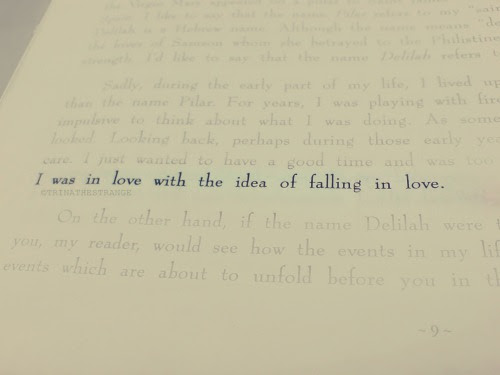 the Virgin Mary appeared on a pillar to
Spain. I like to say that the name Pilar refers to my "sain
Delilah is a Hebrew name. Although the name means "de
the lover of Samson whom she betrayed to the Philistine
strength. I'd like to say that the name Delilah refers t
Sadly, during the early part of my life, I lived up
than the name Pilar. For years, I was playing with fire
impulsive to think about what I was doing. As some
looked. Looking back, perhaps during those early yea
care. I just wanted to have a good time and was too
I was in love with the idea of falling in love.
©TRINATHESTRANGE
On the other hand, if the name Delilah were t
you, my reader, would see how the events in my lif
events which are about to unfold before you in th
~ 9 ~